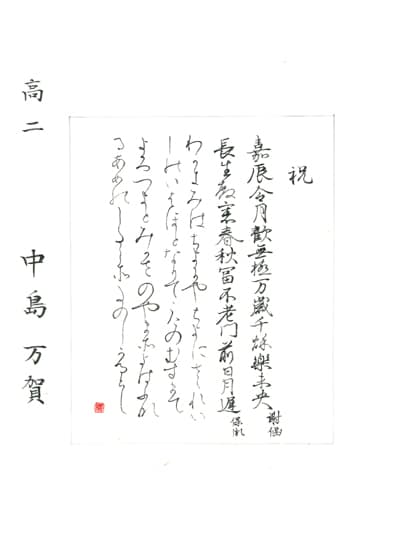 祝
嘉辰令月歡無極万歳千秋樂未央 謝偃
長生殿裏春秋富不老門前日月遅 保胤
わかきみはちよにやちよにさゝれい
しのいはほとなりてこけのむすまて
よろつよとみかさのやまそよはふな
るあめのしたこそたのしかるらし
高二 中島万賀